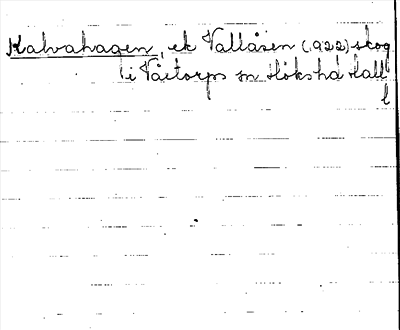 Kalvahagen, ek Vallåsen (1922) skog
i Våxtorps sn Hökshd Hall
l